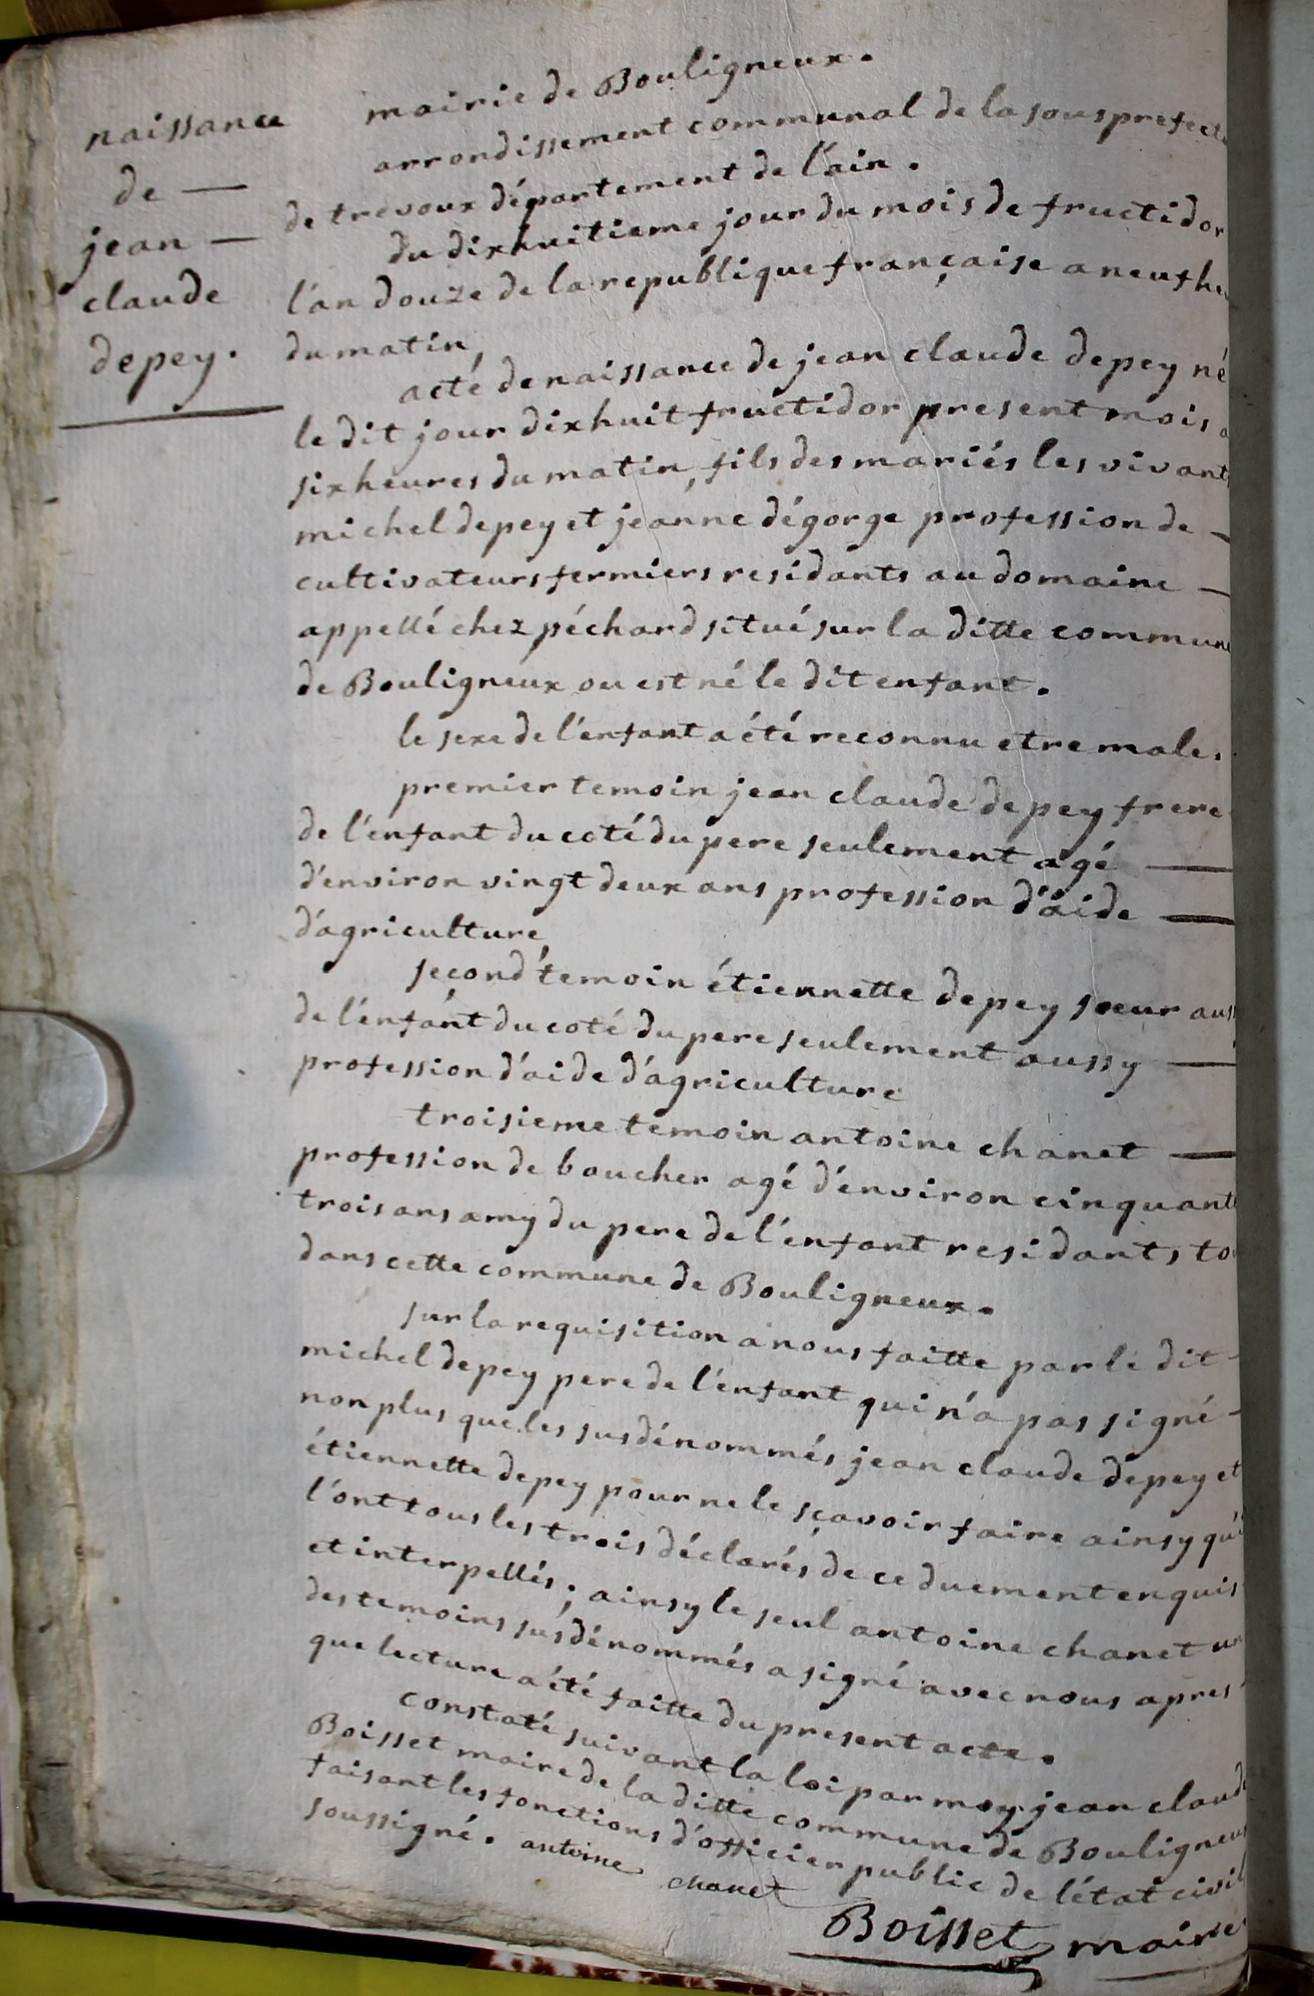 naissance
de —
jean —
claude
depey.
mairie de Bouligneux.
arrondissement communal de la sousprefect
de trevoux département de l'ain.
du dixhuitieme jour du mois de fructidor
l'an douze de la republique française a neuf he
du matin,
acté de naissance de jean claude depey né
le dit jour dixhuit fructidor present mois a
six heures du matin, fils des mariés les vivants
michel depey et jeanne dégorge profession de —
cultivateurs fermiers residants au domaine —
appellé chez péchard situé sur la ditte commune
de Bouligneux ou est né le dit enfant.
le sexe de l'enfant a été reconnu etre male.
premier temoin jean claude depey frere
de l'enfant du coté du pere seulement agé —
d'environ vingt deux ans profession d'aide —
d'agriculture,
second temoin étiennette depey sœur auss
de l'enfant du coté du pere seulement aussy —
profession d'aide d'agriculture
troisieme temoin antoine chanet —
profession de boucher agé d'environ cinquante
trois ans amy du pere de l'enfant residants, to
dans cette commune de Bouligneux.
sur la requisition a nous faitte par le dit -
michel depey pere de l'enfant qui n'a pas signé -
non plus que les susdénommés jean claude depey et
étiennette depey pour ne le sçavoir faire ainsy qu'i
l'ont tous les trois déclarés de ce duement enquis
et interpellés; ainsy le seul antoine chanet un
des temoins susdénommés a signé avec nous apres -
que lecture a été faitte du present acte.
constaté suivant la loi par moy jean claude
Boisset maire de la ditte commune de Bouligneux
faisant les fonctions d'officier public de l'état civil
soussigné. antoine chanet
Boisset maire